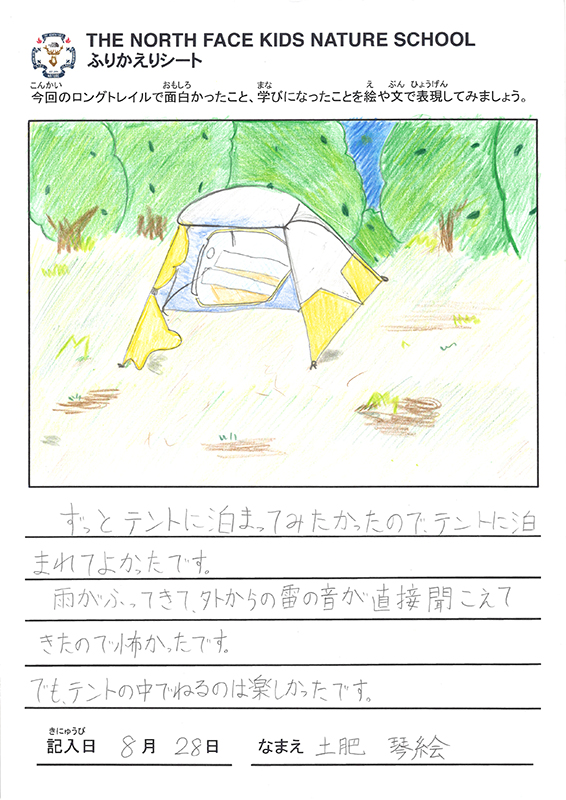 THE NORTH FACE KIDS NATURE SCHOOL
ふりかえりシート
こんかい おもしろ まな え ぶん ひょうげん
今回のロングトレイルで面白かったこと、学びになったことを絵や文で表現してみましょう。
ずっとテントに泊まってみたかったので、テントに泊
まれてよかったです。
雨がふってきて、外からの雷の音が直接聞こえて
きたので怖かったです。
でも、テントの中でねるのは楽しかったです。
きにゅうび
記入日 8月 28日 なまえ 土肥 琴絵